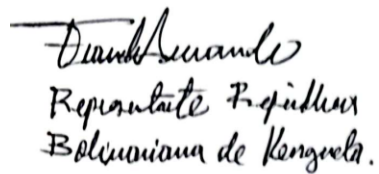 Representante República
Bolivariana de Venezuela.